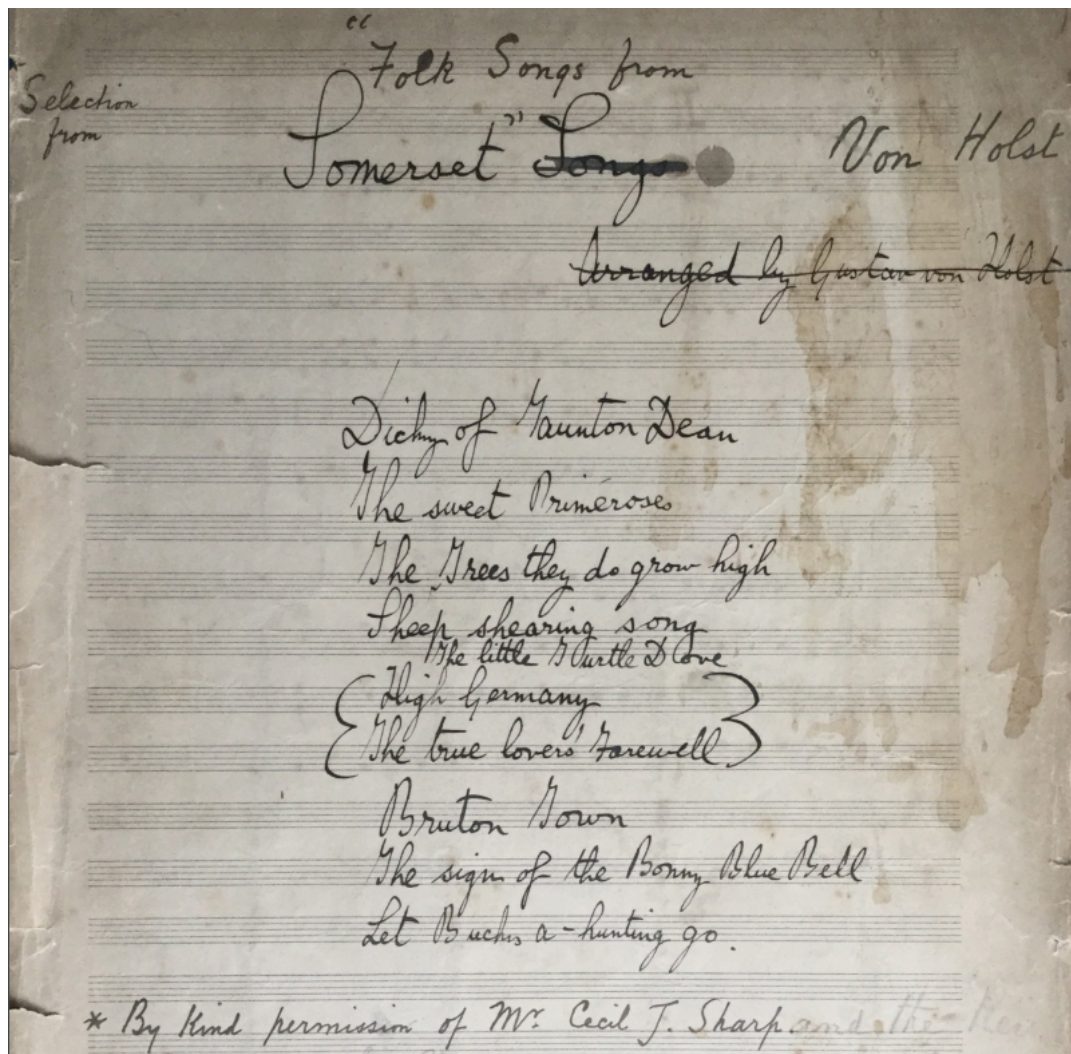 "Folk Songs from
* Selection
from
Somerset" Songs
Von Holst
Arranged by Gustav von Holst
Dicky of Taunton Dean
The sweet Primeroses
The Trees they do grow high
Sheep shearing song
The little Turtle Dove
{ High Germany }
{ The true lovers' Farewell }
Bruton Town
The sign of the Bonny Blue Bell
Let Bucks a-hunting go.
* By Kind permission of Mr. Cecil J. Sharp and the Rev